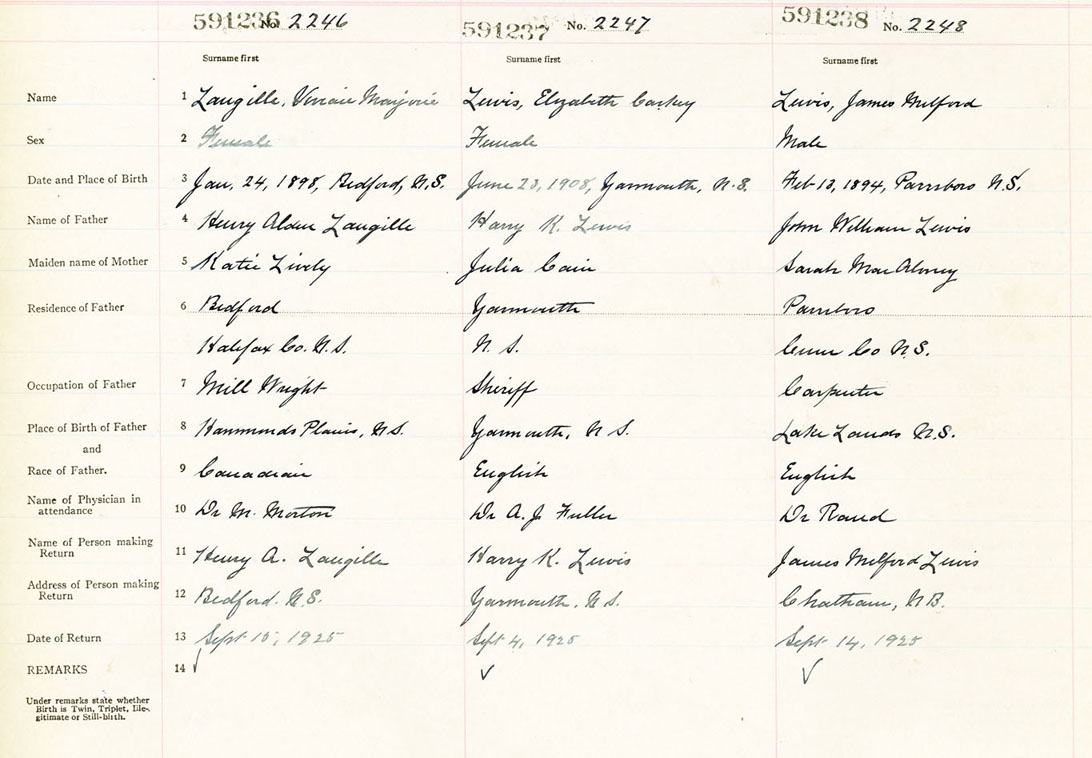 591236 No. 2246 591237 No. 2247 591238 No. 2248
Surname first Surname first Surname first
Name 1 Langille, Vivian Marjorie Lewis, Elizabeth Lewis, James Milford
Sex 2 Female Female Male
Date and Place of Birth 3 Jan. 24, 1898, Bedford, N.S. June 23, 1908, Yarmouth, N.S. Feb 13, 1894, Parrsboro N.S.
Name of Father 4 Henry Alden Langille Harry K. Lewis John William Lewis
Maiden name of Mother 5 Katie Lively Julia Cain Sarah MacAloney
Residence of Father 6 Bedford Yarmouth Parrsboro
Halifax Co. N.S. N.S. Cum Co N.S.
Occupation of Father 7 Mill Wright Sheriff Carpenter
Place of Birth of Father 8 Hammonds Plains, N.S. Yarmouth, N S. Lake Lands N.S.
and
Race of Father. 9 Canadian English English
Name of Physician in
attendance 10 Dr M. Morton Dr A. J. Fuller Dr Rand
Name of Person making
Return 11 Henry A. Langille Harry K. Lewis James Milford Lewis
Address of Person making
Return 12 Bedford. N.S. Yarmouth. N.S. Chatham, N.B.
Date of Return 13 Sept 15, 1925 Sept 4, 1925 Sept 14, 1925
REMARKS 14 ✓ ✓ ✓
Under remarks state whether
Birth is Twin, Triplet, Ille-
gitimate or Still-birth.